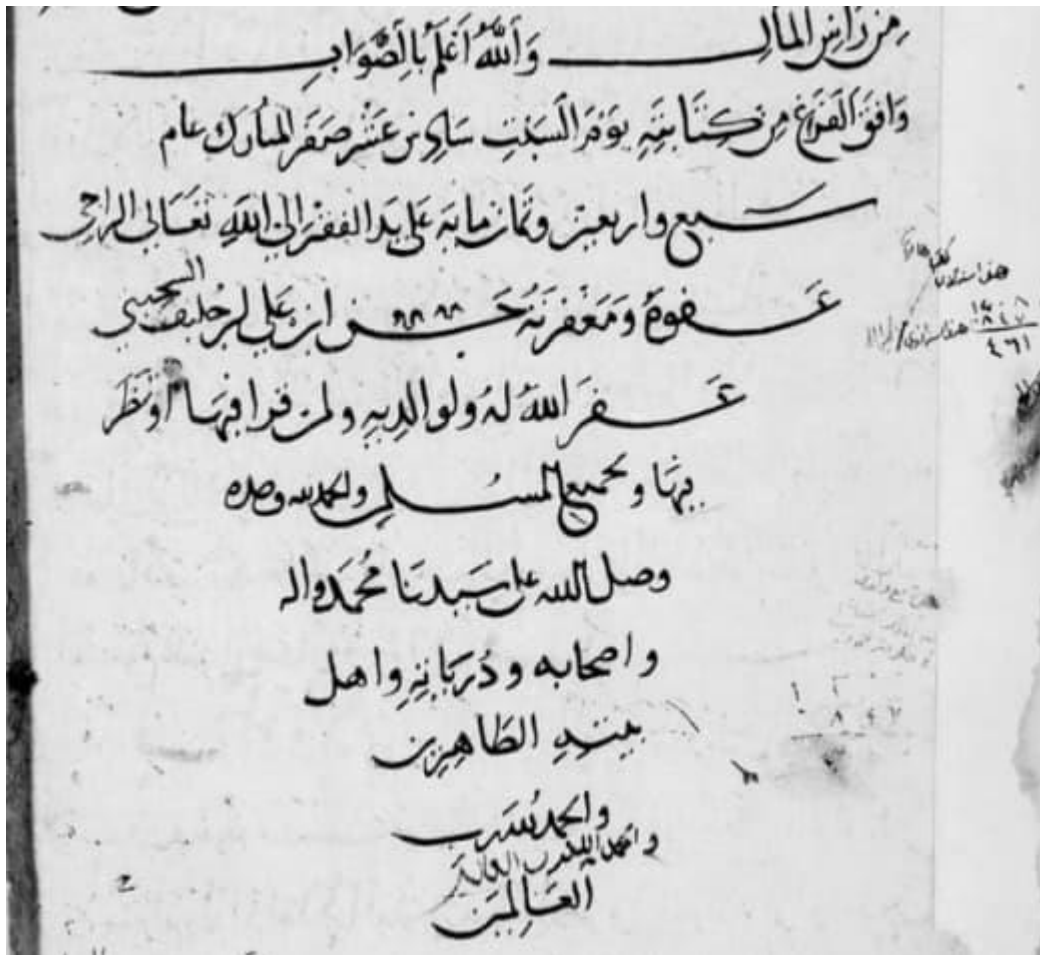 من راس المال والله اعلم بالصواب
وافق الفراغ من كتابته يوم السبت سادس عشر صفر المبارك عام
سبع واربعين وثمان مايه على يد الفقير الى الله تعالى الراجي
عفوه ومغفرته حسن ابن علي
غفر الله له ولوالديه ولمن قرا فيها او نظر
فيها ولجميع المسلمين والحمد لله وحده
وصلى الله على سيدنا محمد واله
واصحابه وذرياته واهل
بيته الطاهرين
والحمد لله رب
العالمين